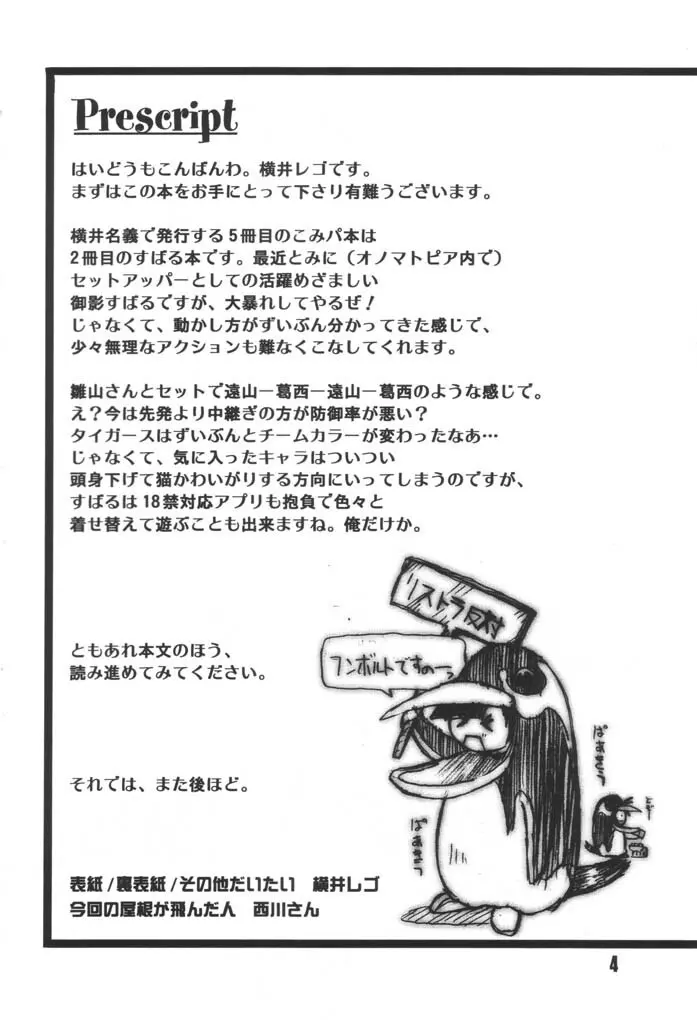 Prescript
はいどうもこんばんわ。横井レゴです。
まずはこの本をお手にとって下さり有難うございます。
横井名義で発行する5冊目のこみパ本は
2冊目のすばる本です。最近とみに（オノマトピア内で）
セットアッパーとしての活躍めざましい
御影すばるですが、大暴れしてやるぜ！
じゃなくて、動かし方がずいぶん分かってきた感じで、
少々無理なアクションも難なくこなしてくれます。
雛山さんとセットで遠山ー葛西ー遠山ー葛西のような感じで。
え？今は先発より中継ぎの方が防御率が悪い？
タイガースはずいぶんとチームカラーが変わったなあ…
じゃなくて、気に入ったキャラはついつい
頭身下げて猫かわいがりする方向にいってしまうのですが、
すばるは18禁対応アプリも抱負で色々と
着せ替えて遊ぶことも出来ますね。俺だけか。
リストラ反対
フンボルトですのーっ
ともあれ本文のほう、
読み進めてみてください。
ぱぁぎゅっ
ぱぁぎゅっ
それでは、また後ほど。
表紙/裏表紙/その他だいたい　横井レゴ
今回の屋根が飛んだ人　西川さん
4